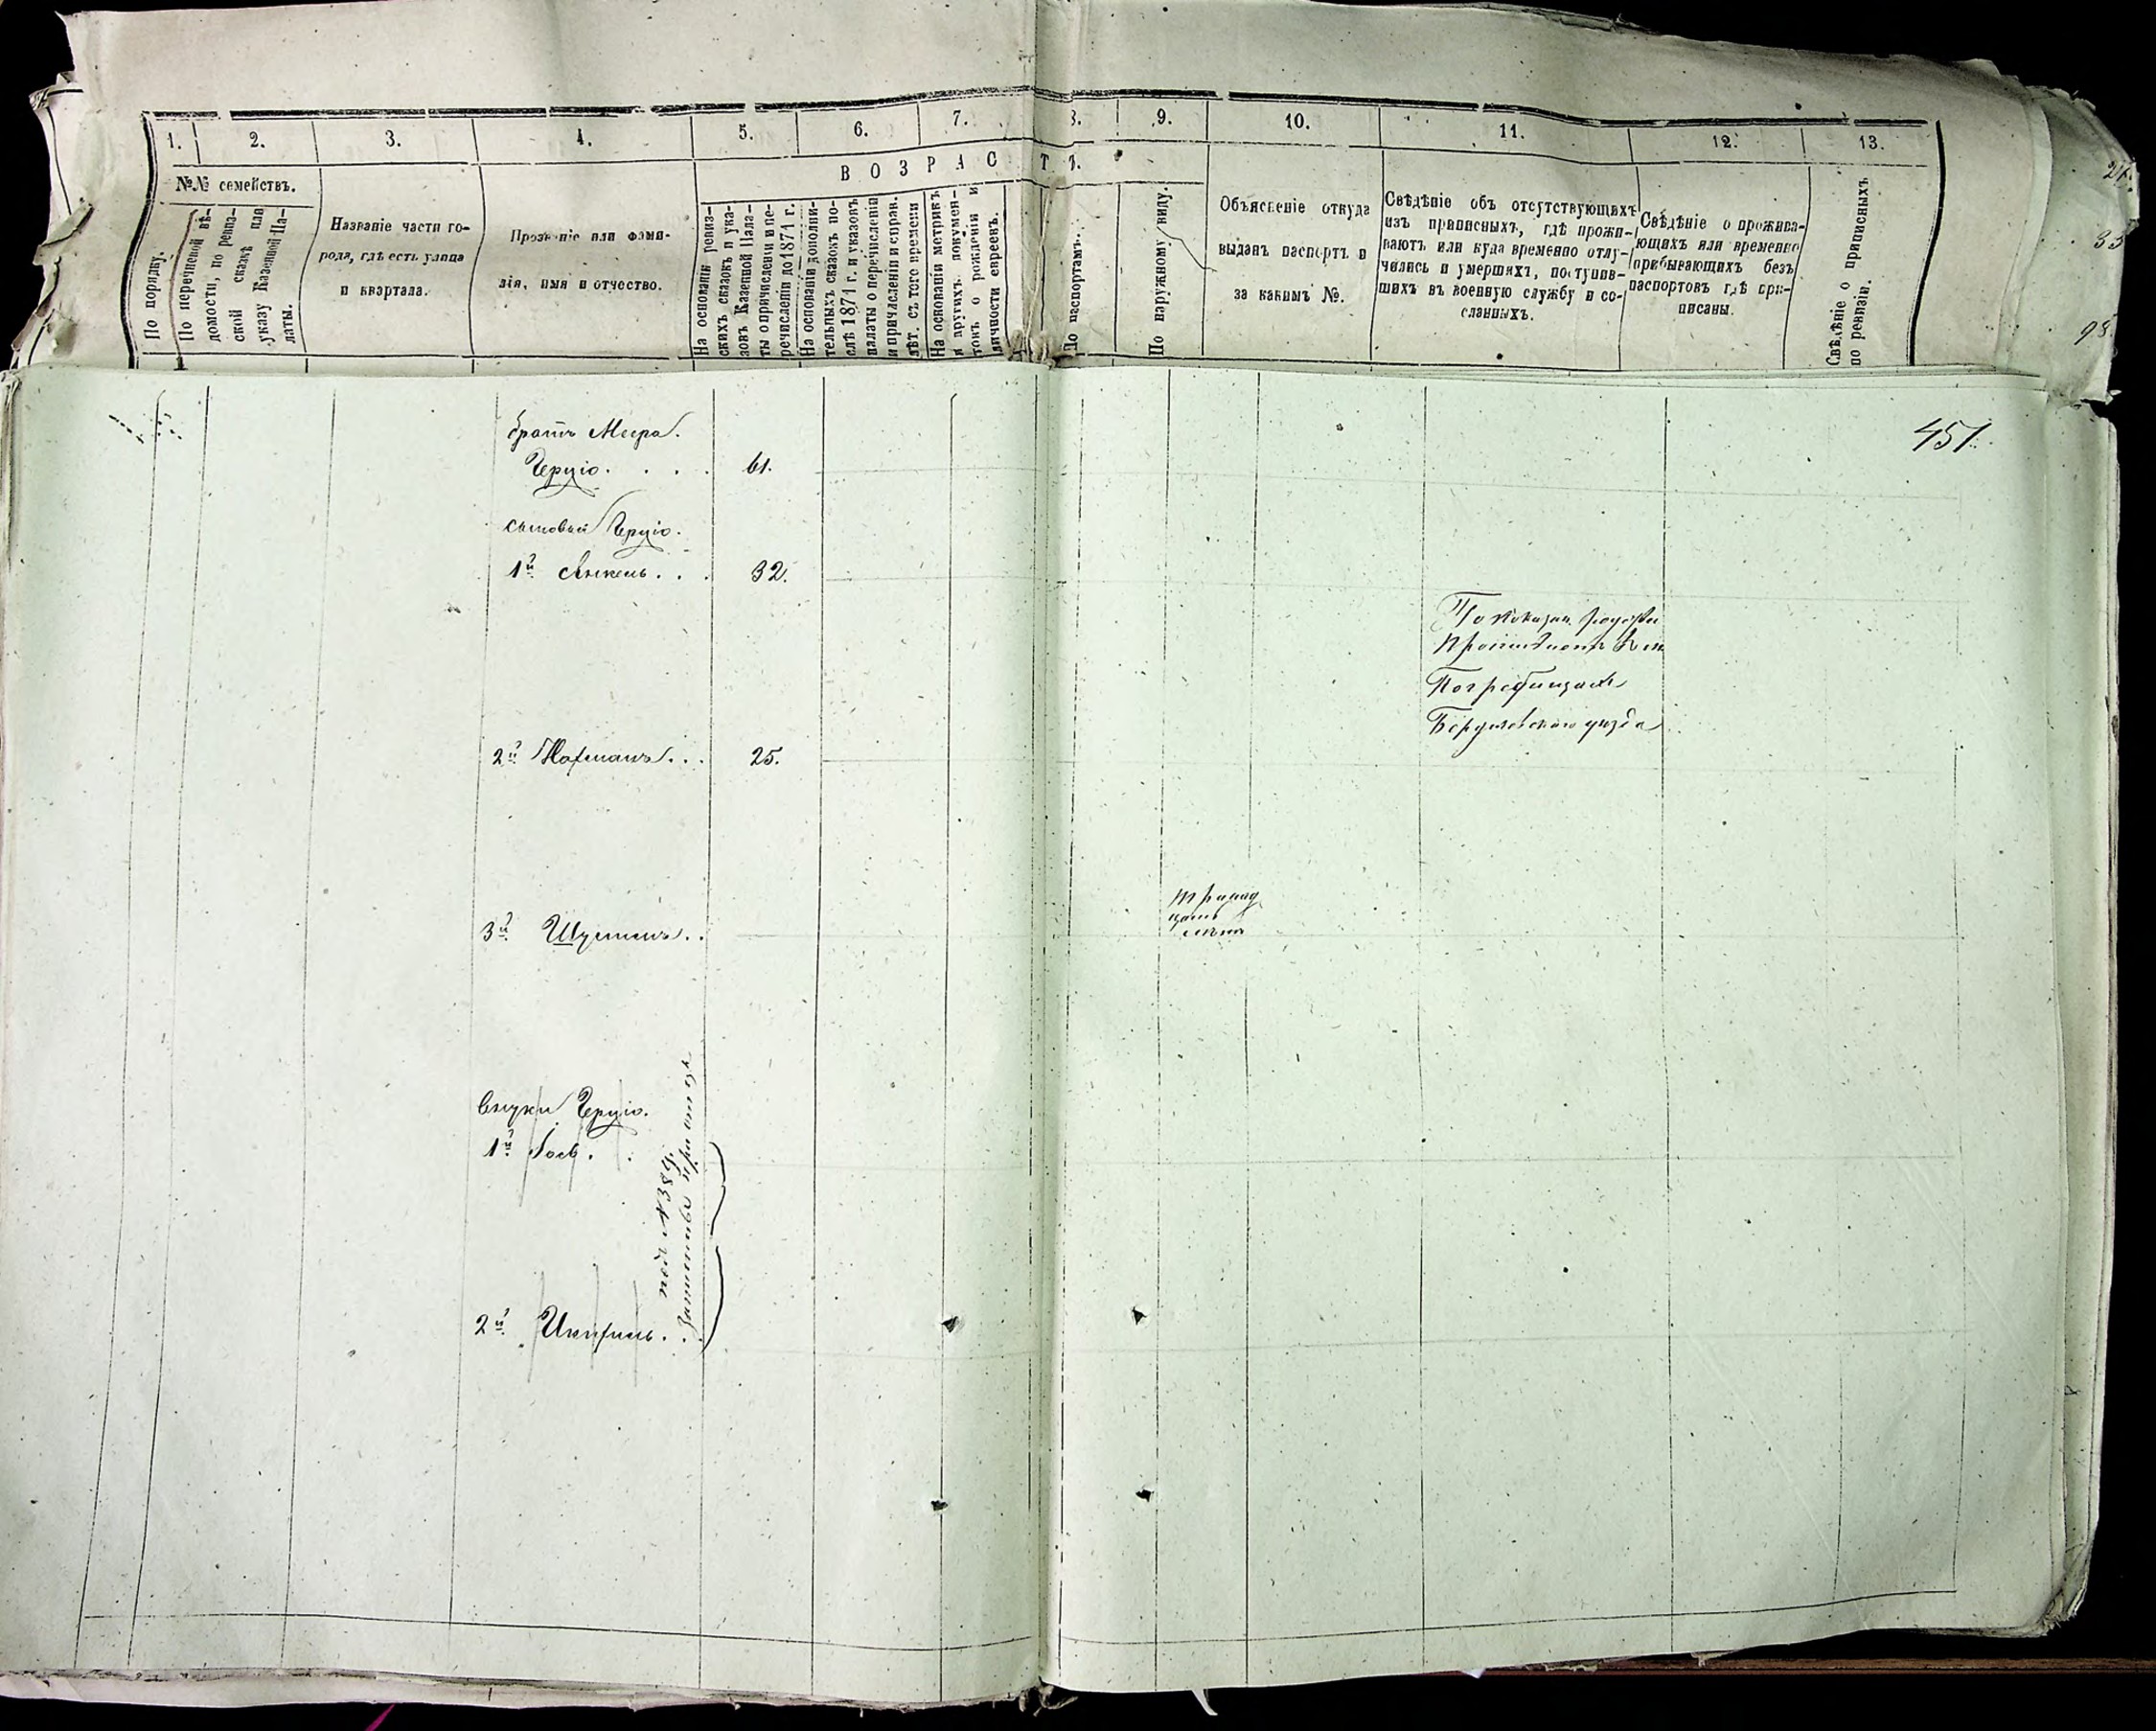 1.
2.
3.
4.
5.
6.
7.
8.
9.
10.
11.
12.
13.
№№ семействъ.
ВОЗРАСТЪ.
По порядку.
По перечневой вѣ-
домости, по ревиз-
ской сказкѣ или
указу Казенной Па-
латы.
Названіе части го-
рода, гдѣ есть улица
и квартала.
Прозваніе или фами-
лія, имя и отчество.
На основаніи ревиз-
скихъ сказокъ и ука-
зовъ Казенной Пала-
ты о причисленіи и пе-
речисленіи до 1871 г.
На основаніи дополни-
тельныхъ сказокъ по-
слѣ 1871 г. и указовъ
палаты о перечисленіи
и причисленіи и справ.
лѣт. съ того времени
На основаніи метрикъ
и другихъ докумен-
товъ о рожденіи и
личности евреевъ.
По паспортамъ.
По наружному виду.
Объясненіе откуда
выданъ паспортъ и
за какимъ №.
Свѣдѣніе объ отсутствующихъ
изъ приписныхъ, гдѣ прожи-
ваютъ или куда временно отлу-
чились и умершихъ, поступив-
шихъ въ военную службу и со-
сланныхъ.
Свѣдѣніе о прожива-
ющихъ или временно
прибывающихъ безъ
паспортовъ гдѣ при-
писаны.
Свѣдѣніе о приписныхъ
по ревизіи.
98.
451.
братъ Меера.
Герціо. . . . 61.
сыновья Герціо.
1й Янкель. . . 32.
По показан.
Проживаетъ въ м.
Погребищахъ
Бердичевскаго уѣзда
2й Нахманъ. . . 25.
3й Шулимъ. .
тринад
цать
лѣтъ
внуки Герціо.
1й Іось. .
2й Икхиль. .
подъ №389.
Записаны при отцѣ